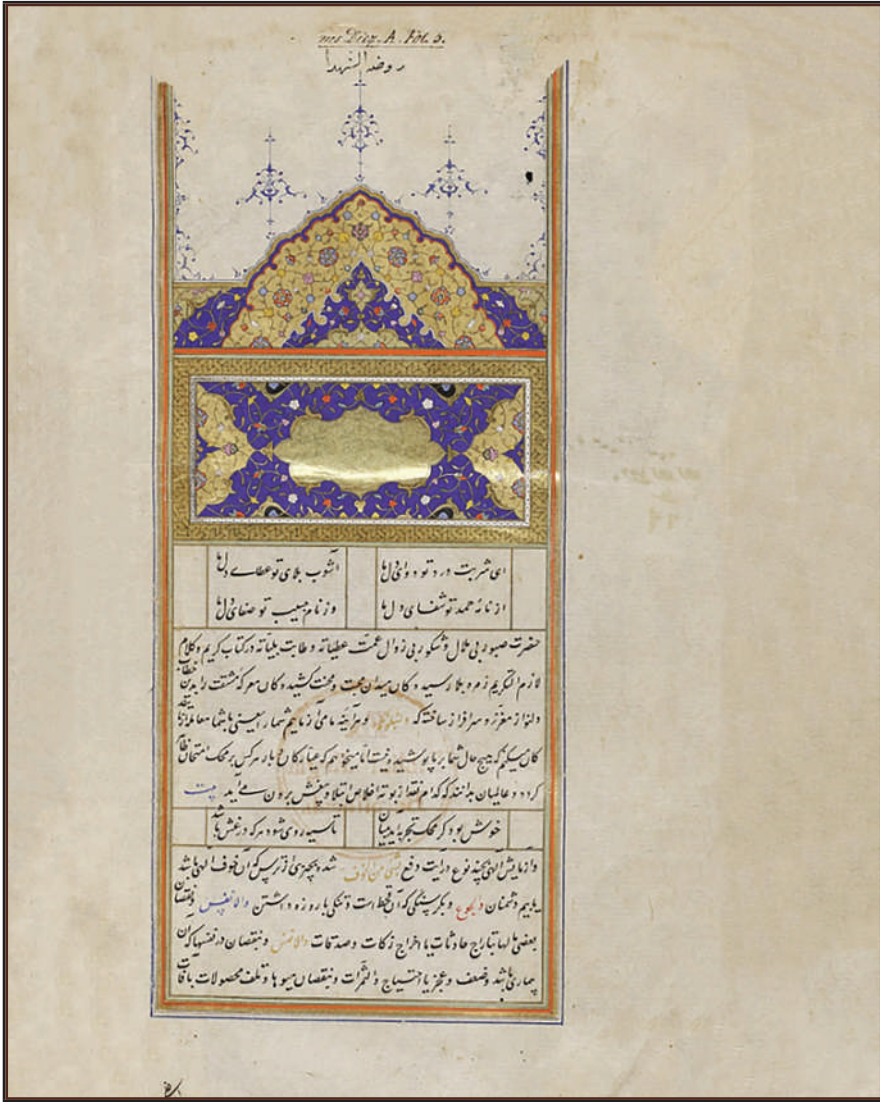 ms Diez. A. Fol. 5.
روضة الشهدا
ای شربت درد تو دوای دل‌ها آشوب بلای تو عطای دل‌ها
از نامهٔ حمد تو شفای دل‌ها وز نام حبیب تو صفای دل‌ها
حضرت صبور بی ملال و شکور بی زوال عمت عطیاته و طابت بلیاته در کتاب کریم و کلام
لازم التکریم زمره بلا رسید و کان میدان محبت و محنت کشید و کان معرکه مشقت را بدین خطاب
دلنواز معزز و سرافراز ساخته که ولنبلونکم و هر آینه ما می آزماییم شما را یعنی با شما معامله
کان میکنم که هیچ حال شما بر ما پوشیده نیست اما میخواهم که عیار کار و بار هر کس بر محک امتحان ظاهر
کردد و عالمیان بدانند که کدام نقد از بوته اخلاص ابتلا بیغش برون می آید بیت
خوش بود کر محک تجربه آید بمیان تا سیه روی شود هر که دروغش باشد
و آزمایش الهی بچند نوع در آیت دفع بشی من الخوف شد بچیزی از ترس که آن خوف الهی باشد
یا بیم دشمنان والجوع و بکرسنکی که آن قحط است و تنکی یا روزه داشتن والانفس و نقصان
بعضی مالها بتاراج حادثات یا اخراج زکات و صدقات والانفس و بنقصان در نفسها که آن
بیماری باشد و ضعف و عجز یا احتیاج والثمرات و بنقصان میوها و تلف محصولات بآفات